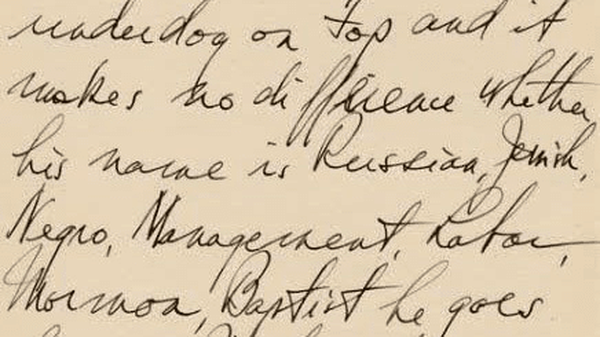 underdog on top and it
makes no difference whether
his name is Russian, Jewish,
Negro, Management, Labor,
Mormon, Baptist he goes